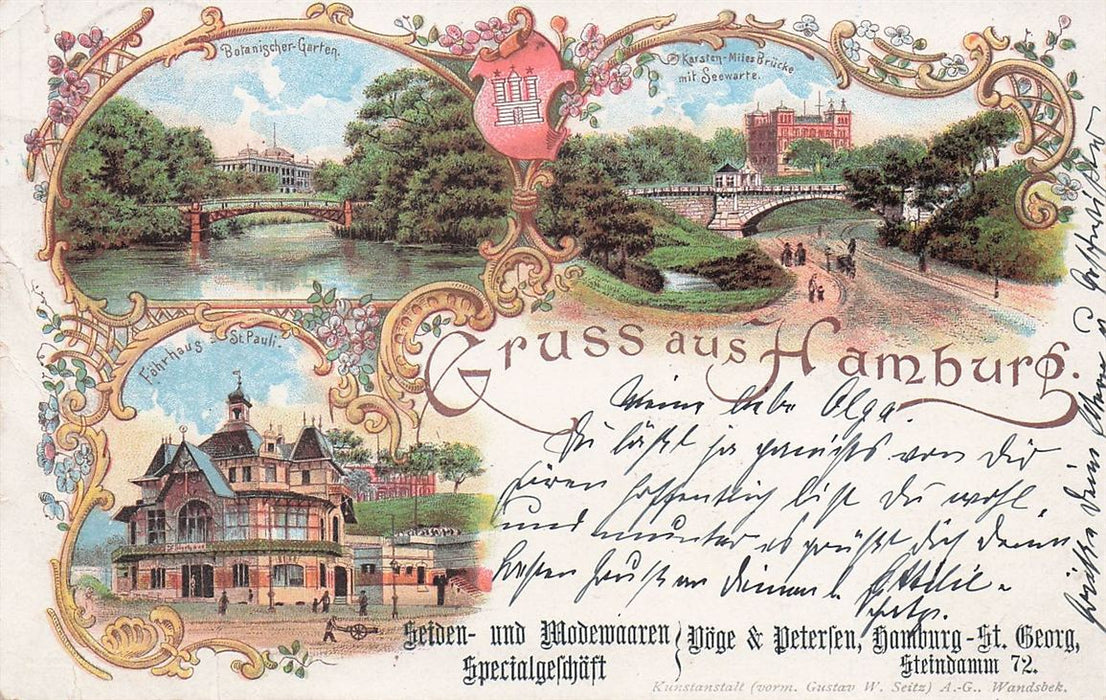 Botanischer-Garten.
Karsten-Miles Brücke
mit Seewarte.
Fährhaus St. Pauli.
Gruss aus Hamburg.
Meine liebe Olga
Du läßt ja garnichts von Dir
hören hoffentlich bist Du wohl
und munter es grüßt Dich Deine
besten Gruß an
Seiden- und Modewaaren
Specialgeschäft
Vöge & Petersen, Hamburg-St. Georg,
Steindamm 72.
Kunstanstalt (vorm. Gustav W. Seitz) A.-G., Wandsbek.